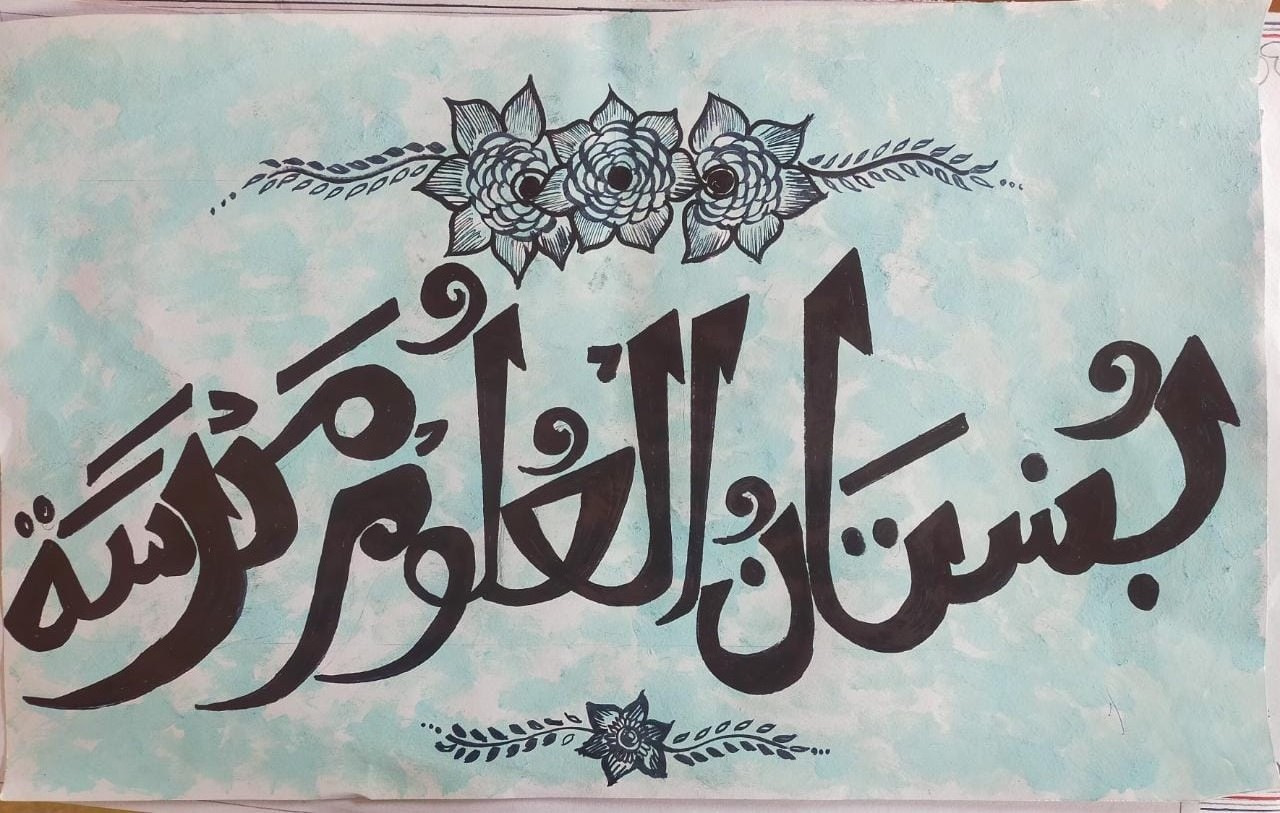 بُسْتَانُ الْعُلُوْمْ مَدْرَسَة